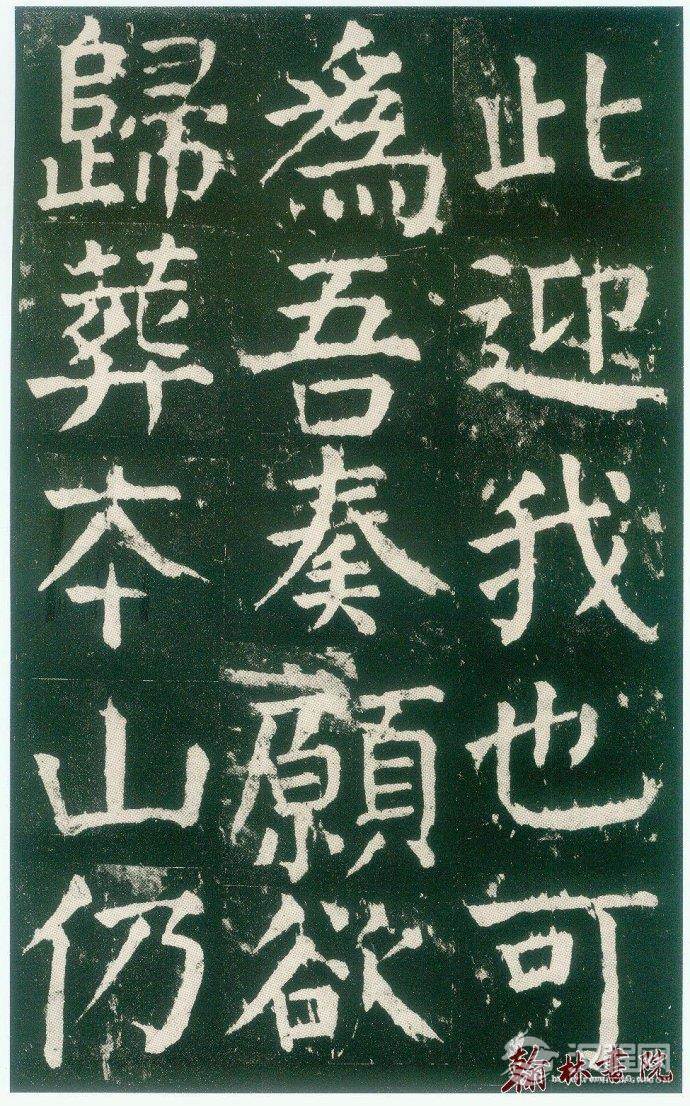 此迎我也可
為吾奏願欲
歸葬本山仍
汉程网
翰林書院